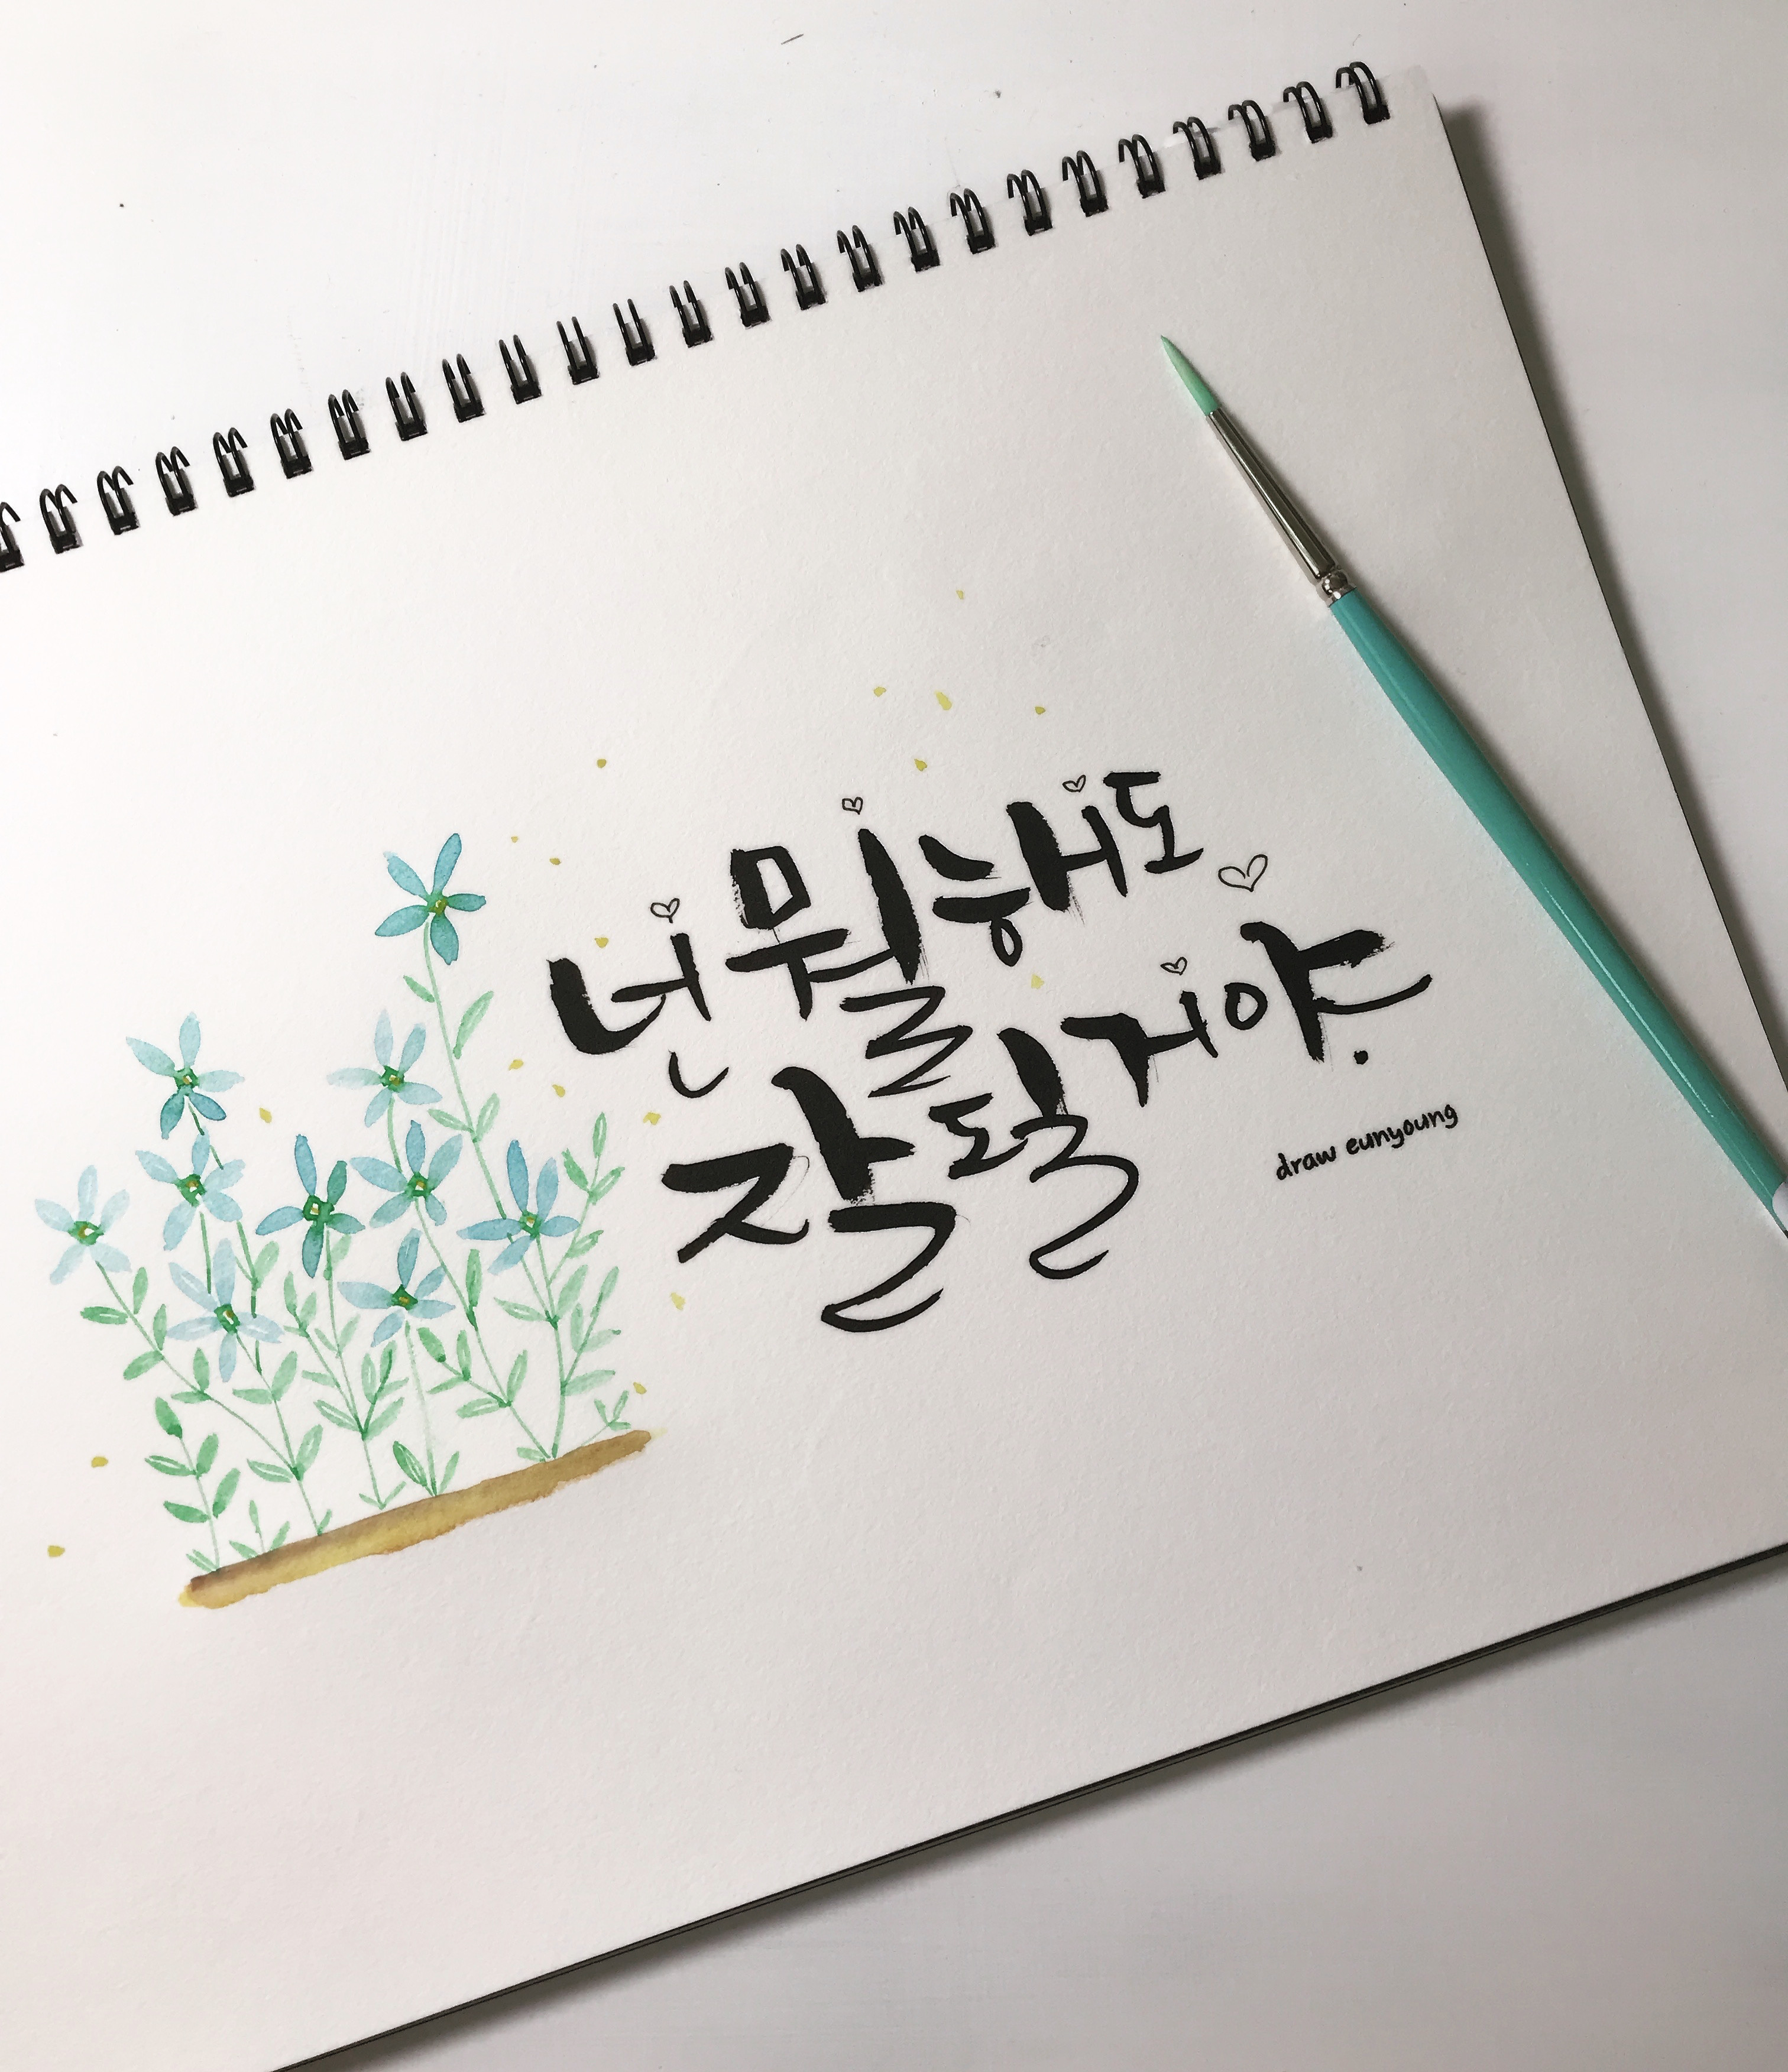 넌 뭘 해도
잘 될 거야.
draw eunyoung